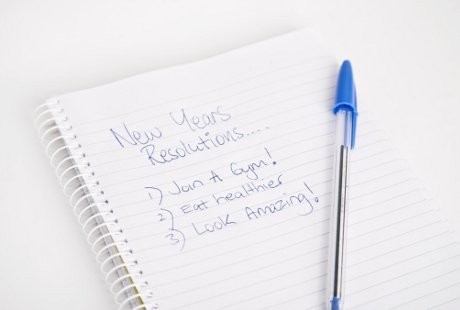 New Years
Resolutions.....
1) Join A Gym!
2) Eat healthier
3) Look Amazing!